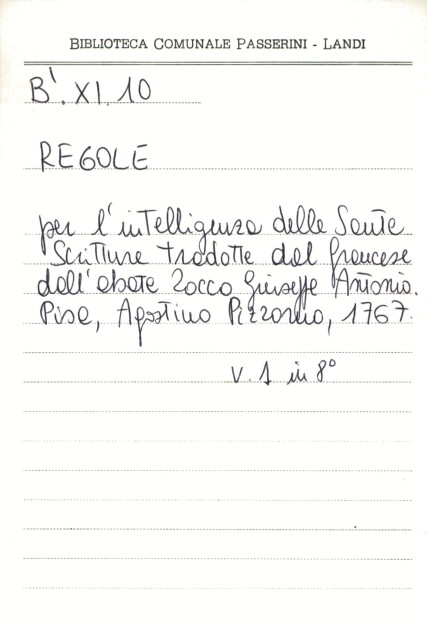 BIBLIOTECA COMUNALE PASSERINI - LANDI
B'. XI. 10
REGOLE
per l'intelligenza delle Sante
Scritture tradotte dal francese
dall'abate Zocco Giuseppe Antonio.
Pisa, Agostino Pizzorno, 1767.
V. 1 in 8°